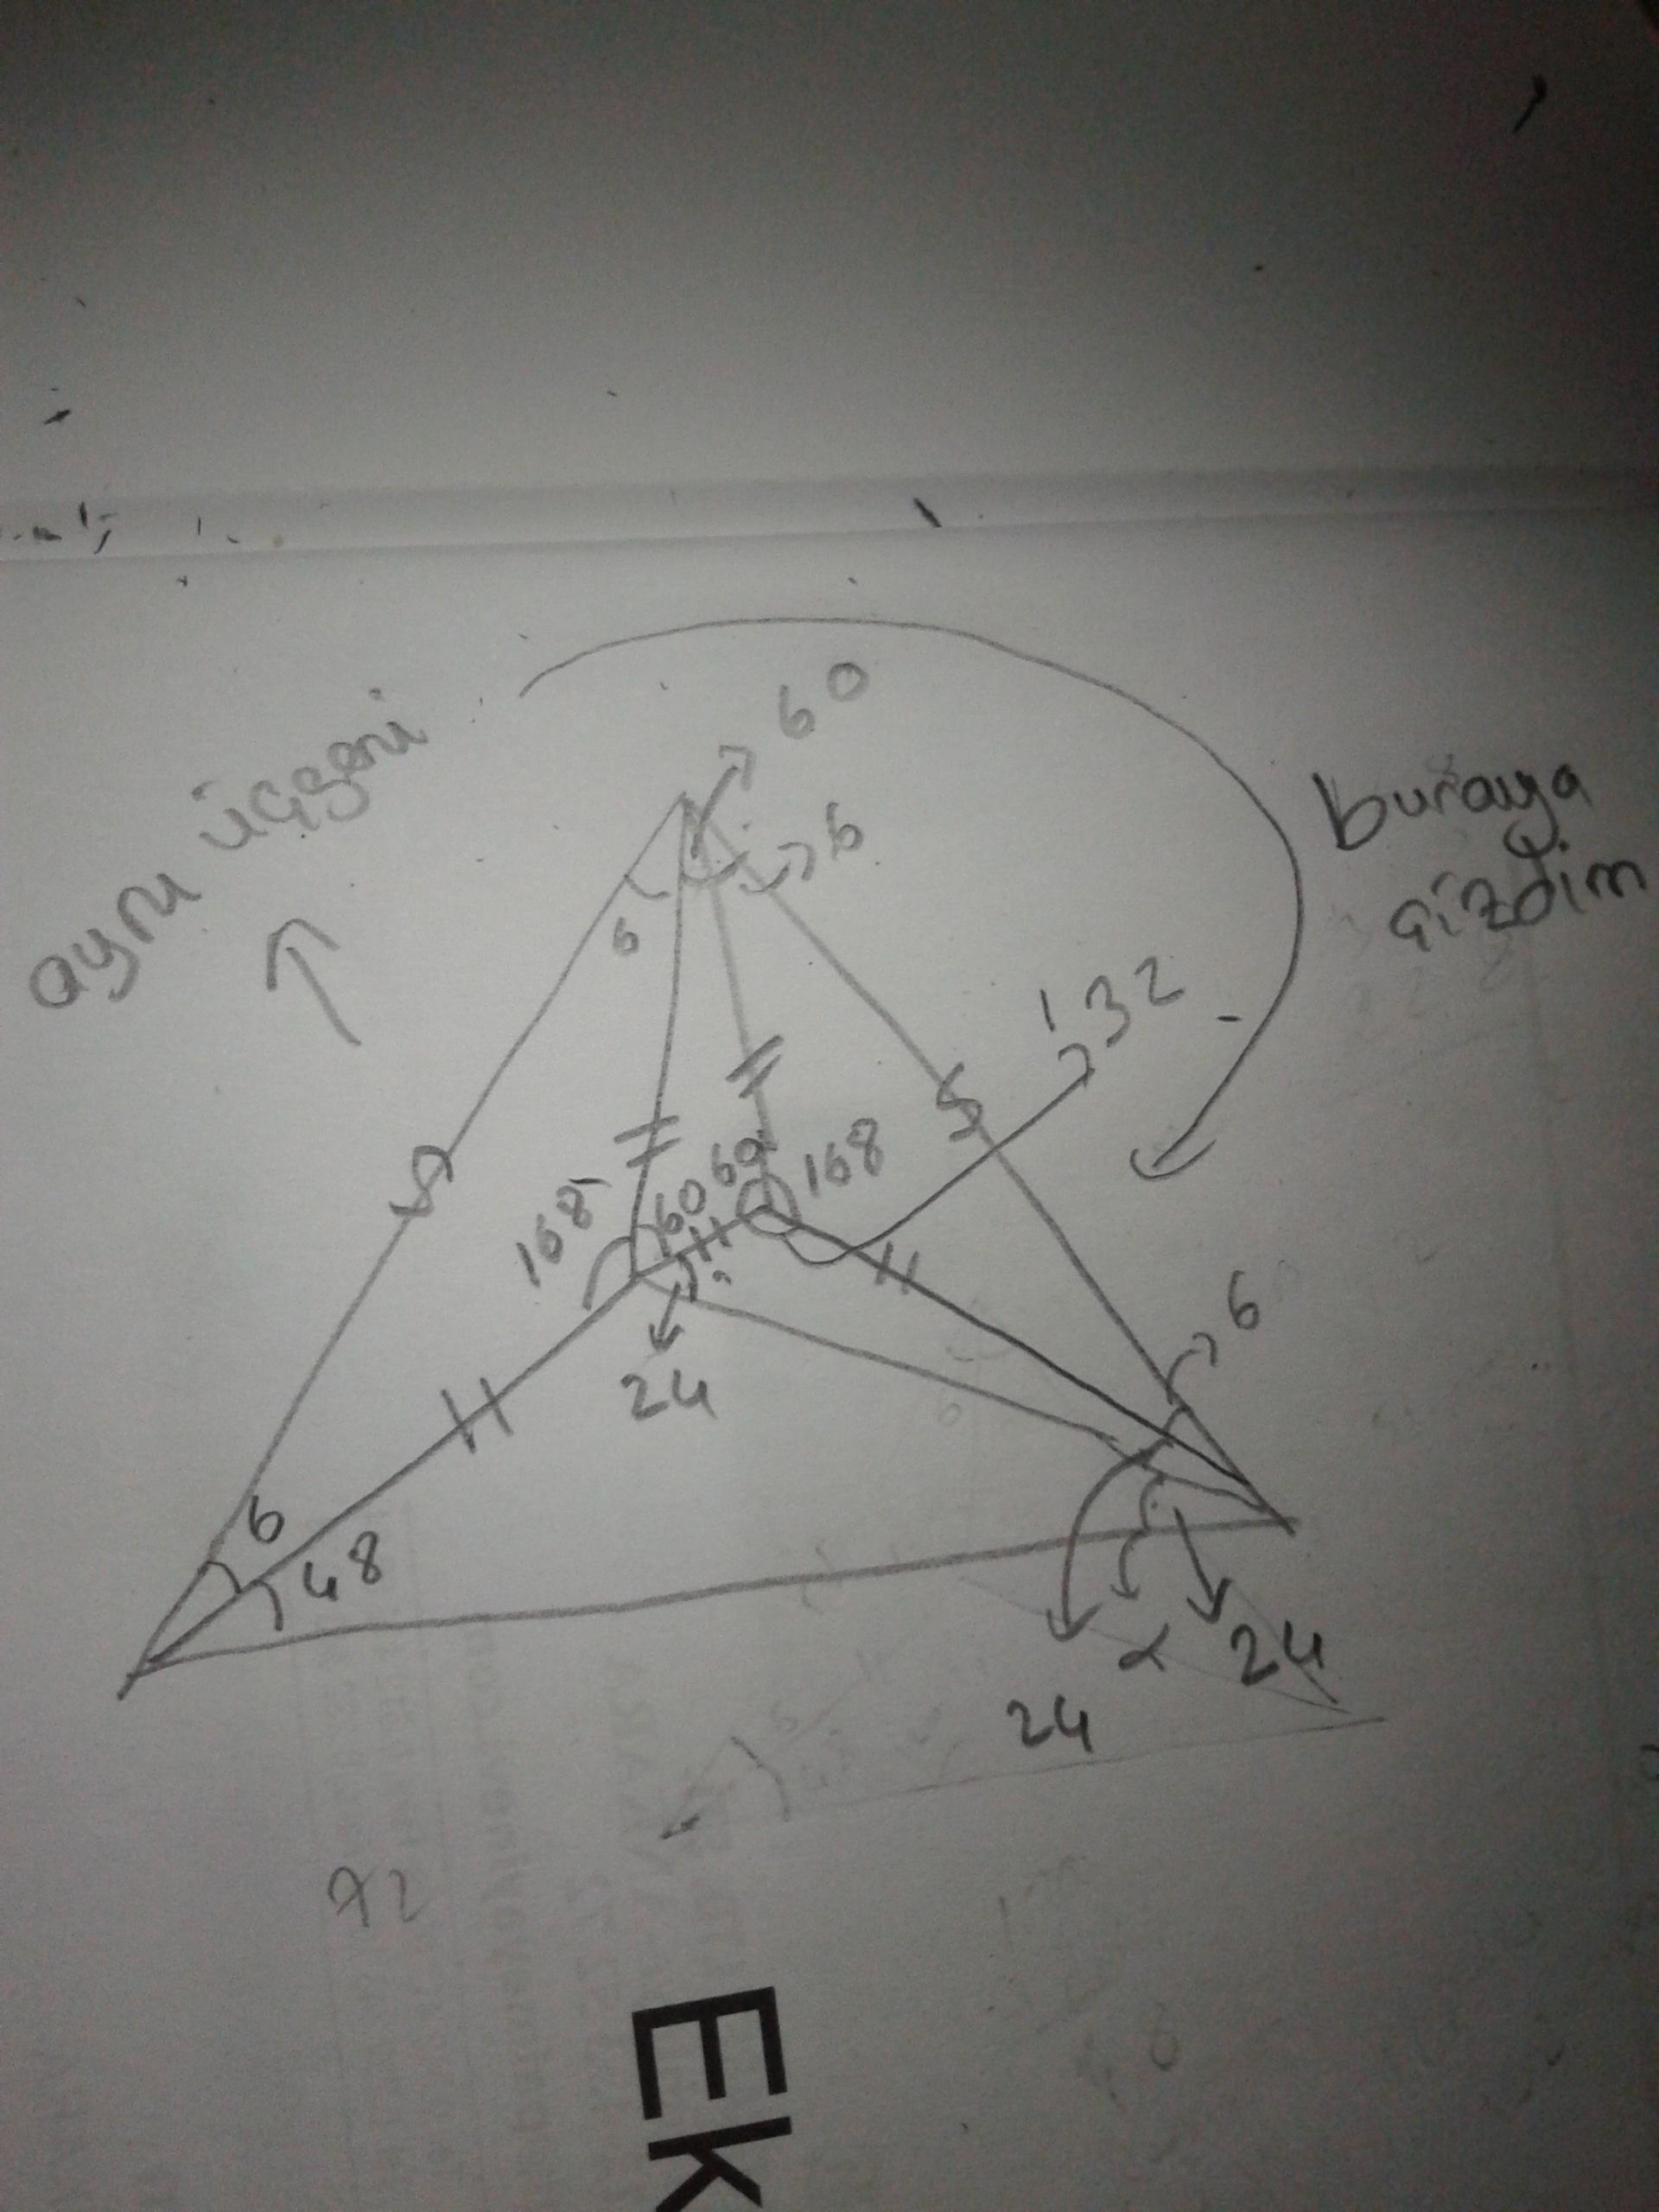 60
aynı üçgeni
buraya
çizdim
6
6
132
168
60
60
168
24
6
6
48
α
24
24
72
Ek